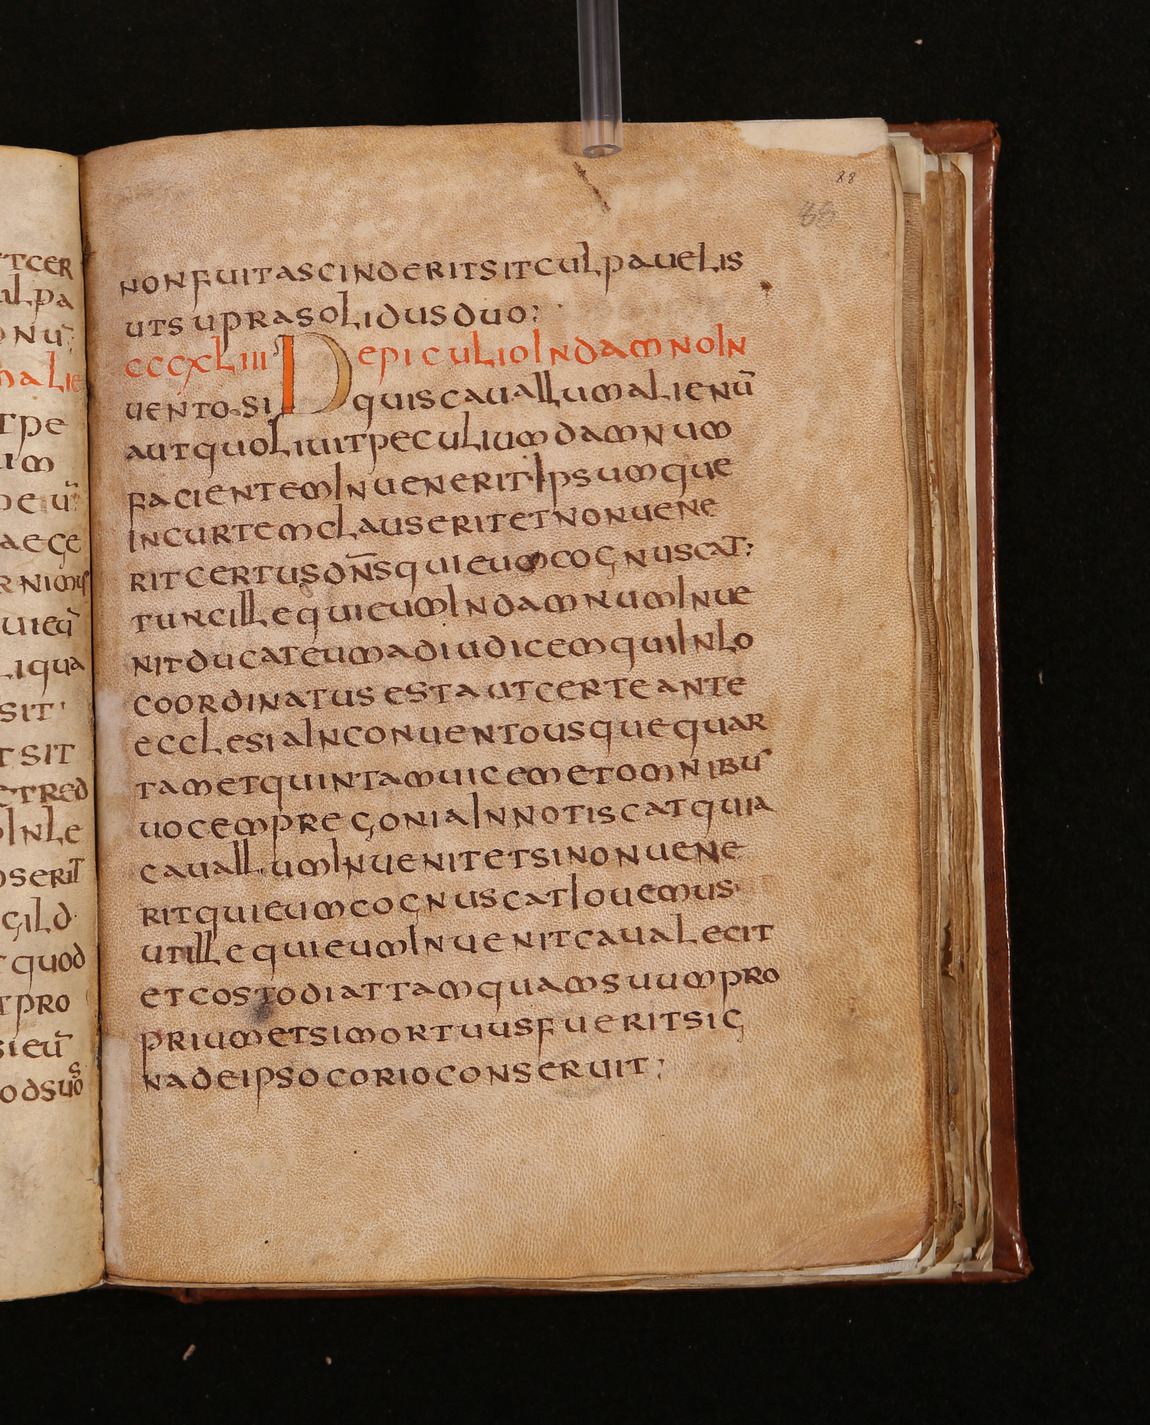 88
88
TCER
ulpa
NONFUITASCINDERITSITCULPAUELIS
UTSUPRASOLIDUSDUO;
CCCXLIII DEPICULIOINDAMNOIN
UENTO·SIQUISCAUALLUMALIENŪ
AUTQUOLIUITPECULIUMDAMNUM
FACIENTEMINUENERIT·IPSUMQUE
INCURTEMCLAUSERITETNONUENE
RITCERTUSDN̄SQUIEUMCOGNUSCAT;
TUNCILLEQUIEUMINDAMNUMINUE
NITDUCATEUMADIUDICEMQUIINLO
COORDINATUSESTAUTCERTEANTE
ECCLESIAINCONUENTOUSQUEQUAR
TAMETQUINTAMUICEMETOMNIBUS
UOCEMPREGONIAINNOTISCATQUIA
CAUALLUMINUENITETSINONUENE
RITQUIEUMCOGNUSCATIOUEMUS
UTILLEQUIEUMINUENITCAUALECIT
ETCOSTODIATTAMQUAMSUUMPRO
PRIUMETSIMORTUUSFUERITSIG
NADEIPSOCORIOCONSERUIT;